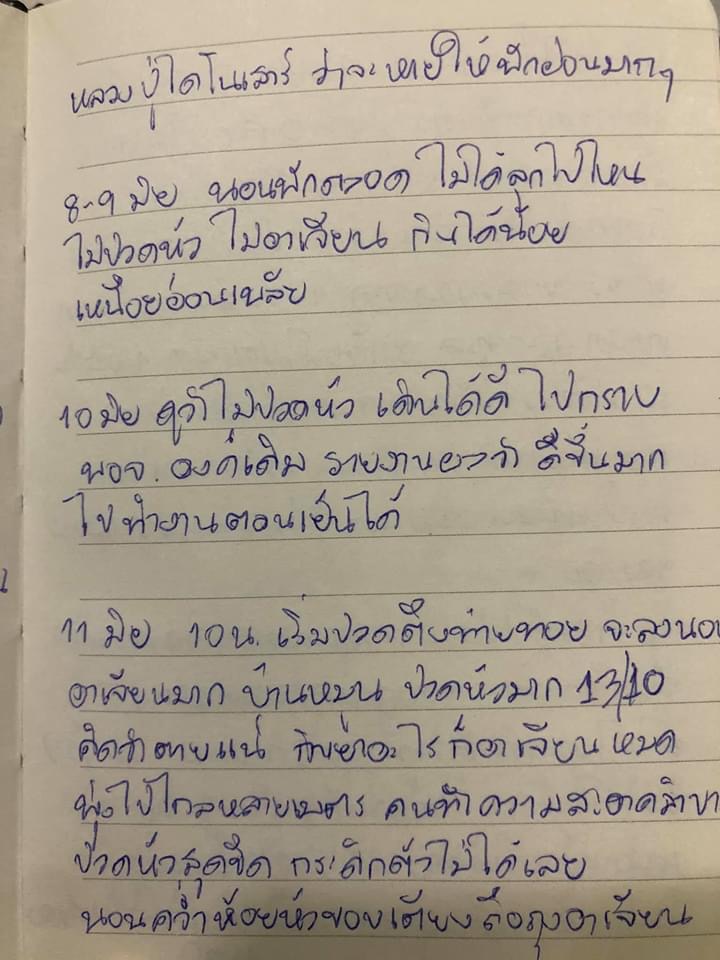 หลวงปู่ไดโนเสาร์ ว่าจะหายให้พักผ่อนมากๆ
8-9 มิย นอนพักตลอด ไม่ได้ลุกไปไหน
ไม่ปวดหัว ไม่อาเจียน กินได้น้อย
เหนื่อยอ่อนเพลีย
10 มิย ดูว่าไม่ปวดหัว เดินได้ดี ไปกราบ
พอจ. องค์เดิม รายงานผลว่า ดีขึ้นมาก
ไปทำงานตอนเย็นได้
11 มิย 10 น. เริ่มปวดตึงท้ายทอย จะลงนอน
อาเจียนมาก บ้านหมุน ปวดหัวมาก 13/10
คิดว่าตายแน่ กินยาอะไรก็อาเจียนหมด
พุ่งไปไกลหลายเมตร คนทำความสะอาดลำบา
ปวดหัวสุดขีด กระดิกตัวไม่ได้เลย
นอนคว่ำห้อยหัวขอบเตียงถือถุงอาเจียน